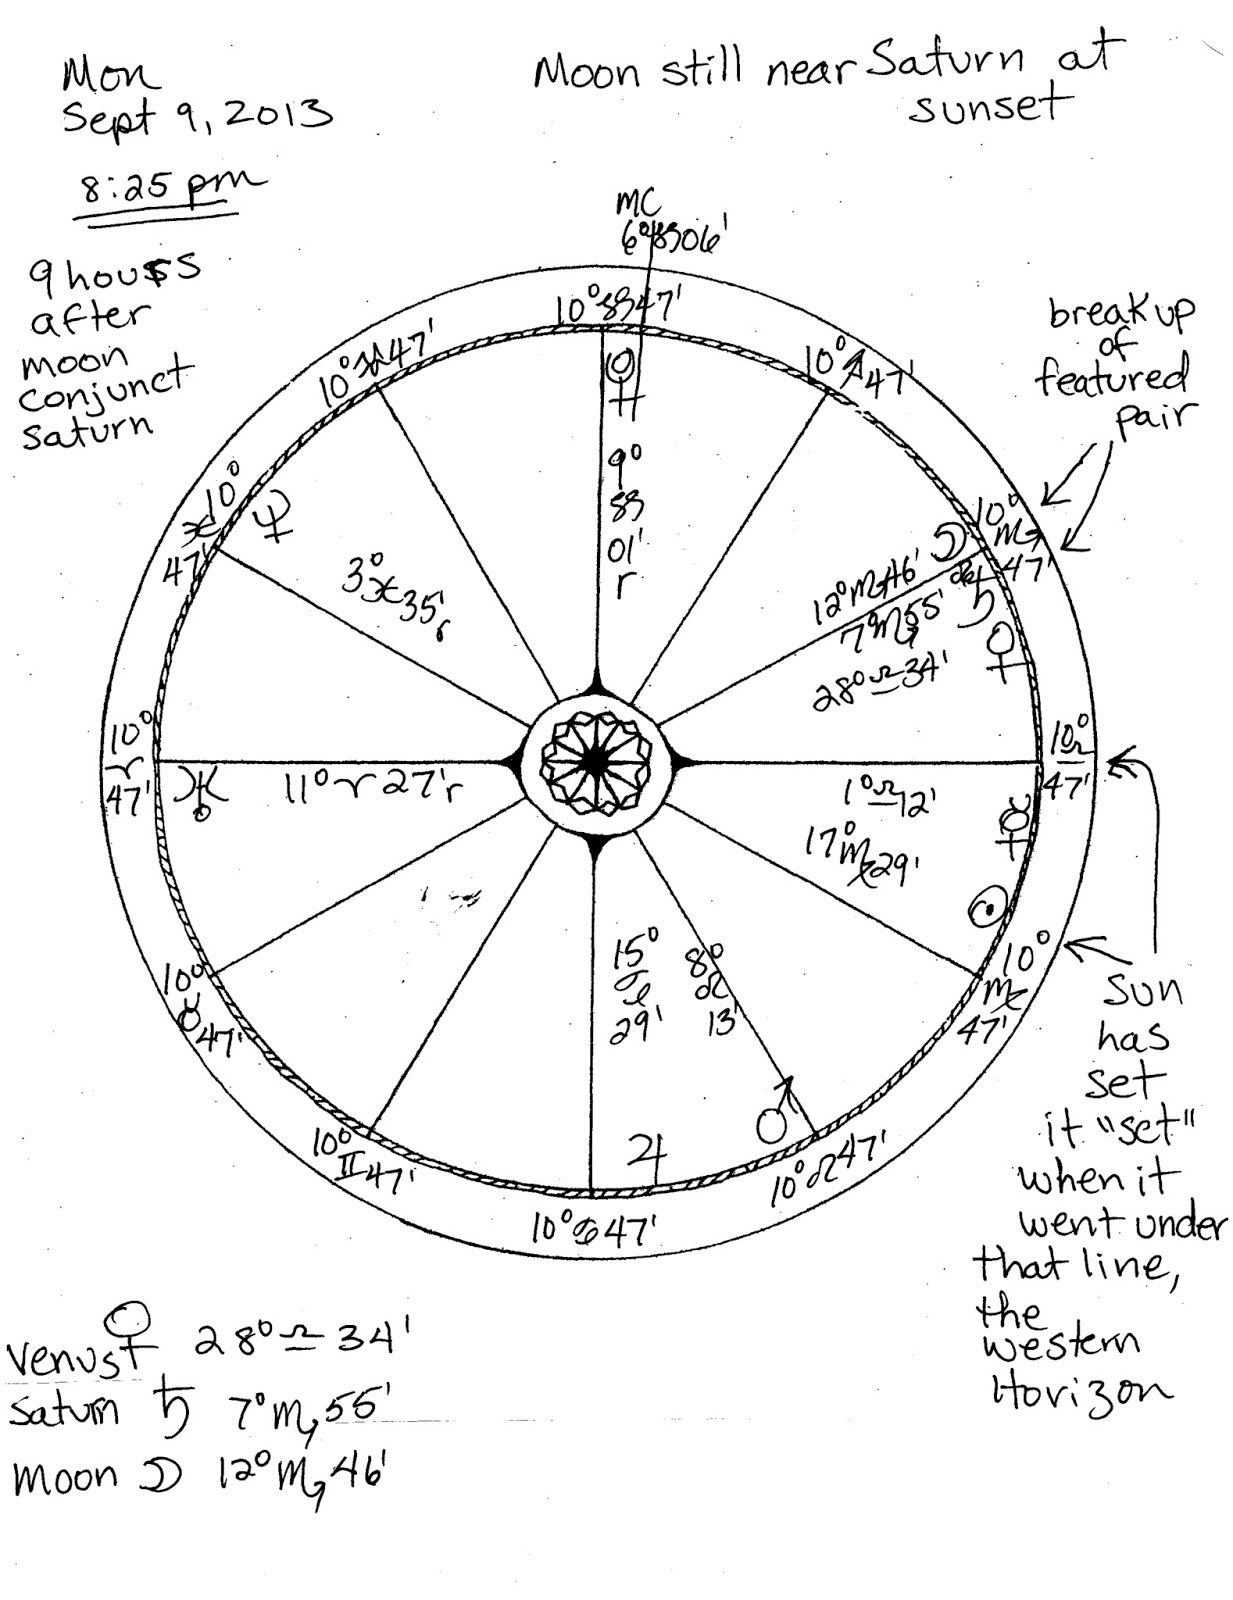 Mon
Sept 9, 2013
8:25 pm
9 hours
after
moon
conjunct
saturn
Moon still near Saturn at
sunset
MC
6°♑06'
10°♑47'
10°♒47'
10°♐47'
break up
of
featured
pair
10°
♓
47'
♆
3°♓35'r
♇
9°
♑
01'
r
☽
12°♏46'
10°
♏
47'
♄
7°♏55'
♀
28°♎34'
10°
♈
47'
♅
11°♈27'r
10°
♎
47'
1°♎12'
☿
17°
♍29'
☉
10°
♍
47'
10°
♉47'
15°
♋
29'
8°
♌
13'
♃
♂
10°
♊47'
10°♋47'
10°♌47'
Sun
has
set
it "set"
when it
went under
that line,
the
western
Horizon
Venus ♀ 28°♎34'
Saturn ♄ 7°♏55'
Moon ☽ 12°♏46'